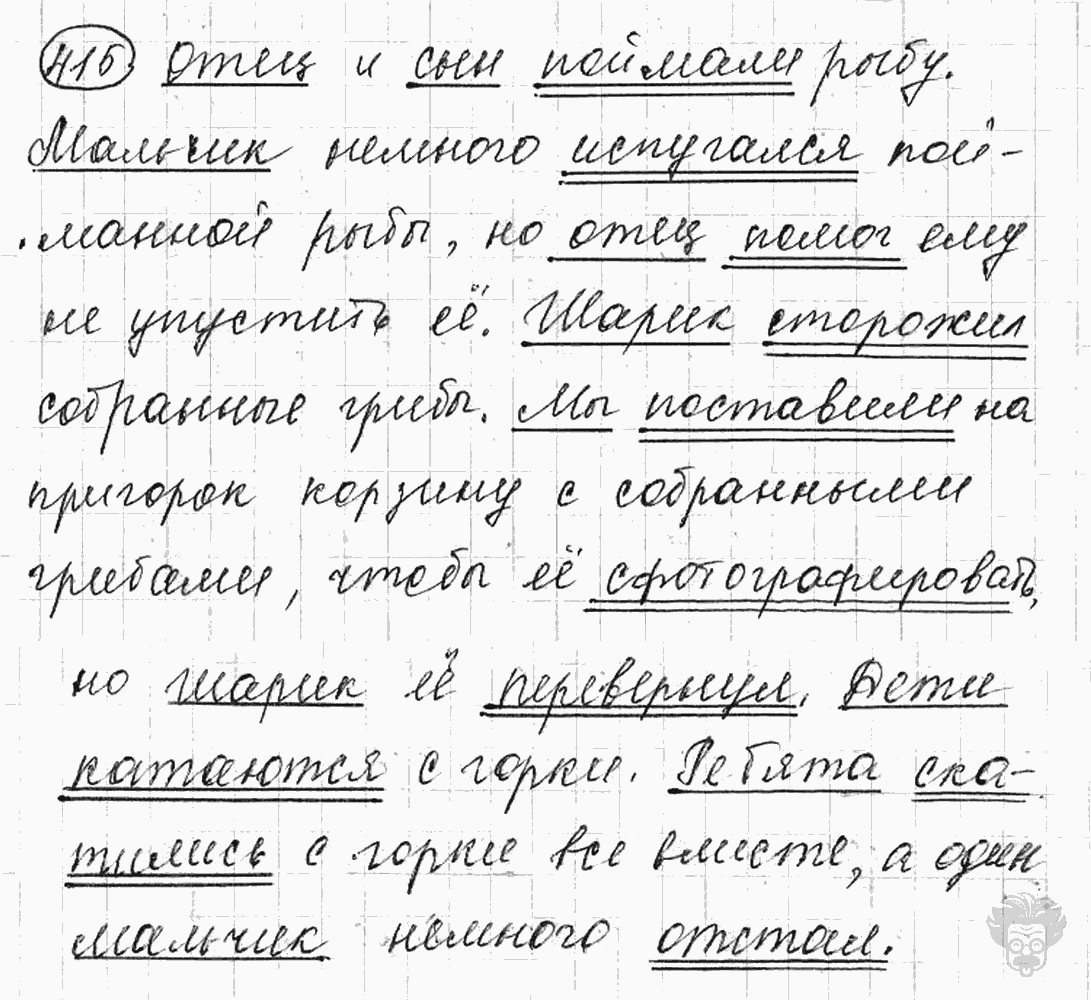 415. Отец и сын поймали рыбу.
Мальчик немного испугался пой-
манной рыбы, но отец помог ему
не упустить её. Шарик сторожил
собранные грибы. Мы поставили на
пригорок корзину с собранными
грибами, чтобы её сфотографировать,
но шарик её перевернул. Дети
катаются с горки. Ребята ска-
тились с горки все вместе, а один
мальчик немного отстал.